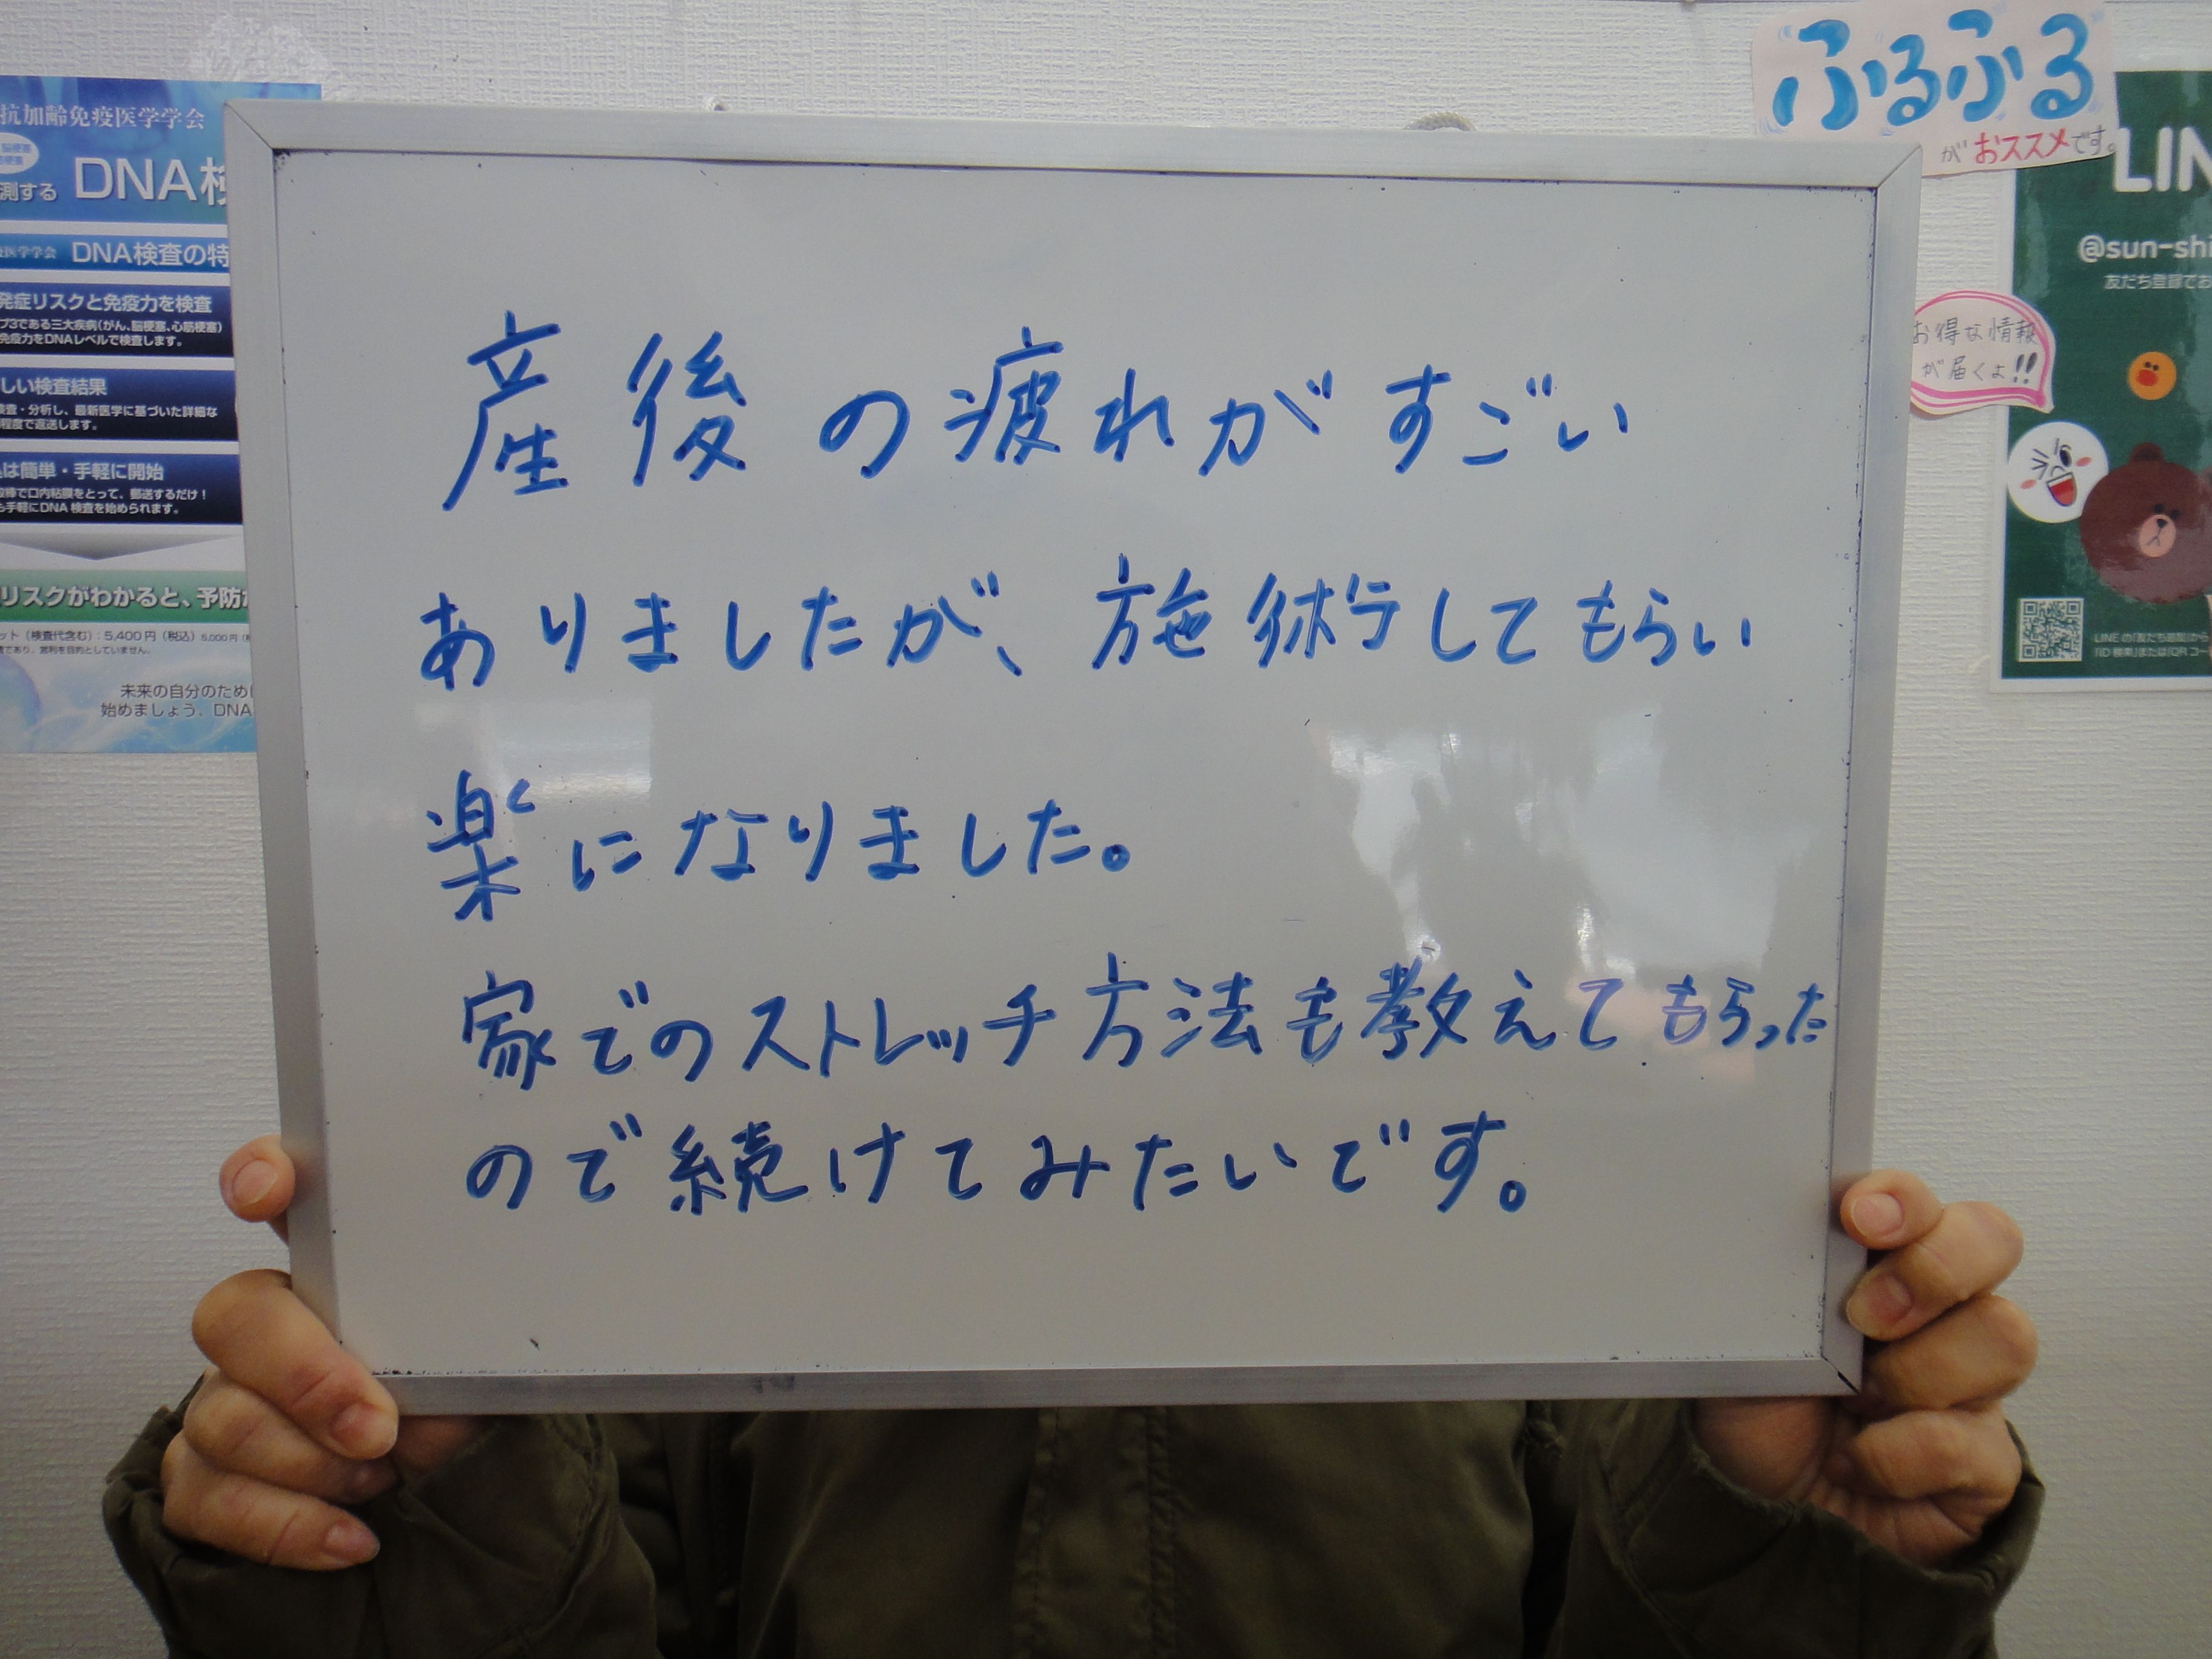 産後の疲れがすごい
ありましたが、施術してもらい
楽になりました。
家でのストレッチ方法も教えてもらった
ので続けてみたいです。
抗加齢免疫医学学会
測する DNA検
DNA検査の特
発症リスクと免疫力を検査
プ3である三大疾病(がん、脳梗塞、心筋梗塞)
免疫力をDNAレベルで検査します。
しい検査結果
検査・分析し、最新医学に基づいた詳細な
程度で返送します。
は簡単・手軽に開始
綿棒で口内粘膜をとって、郵送するだけ!
手軽にDNA検査を始められます。
リスクがわかると、予防
ット(検査代含む):5,400円(税込)
未来の自分のため
始めましょう、DNA
ふるふる
がおススメです。
LIN
@sun-shi
友だち登録でお
お得な情報
が届くよ!!